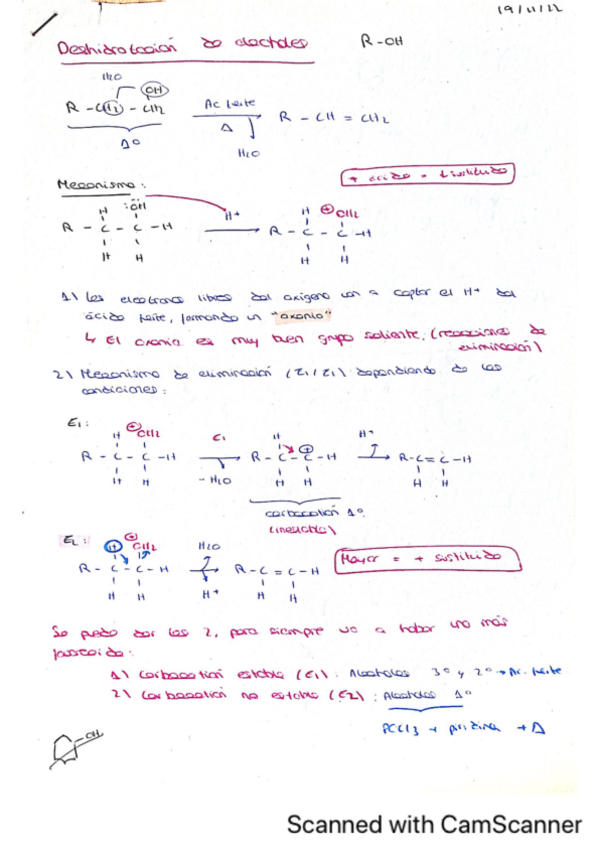 19/11/22
Deshidratación de alcoholes R-OH
H2O
OH
R - CH2 - CH2 Ac fuerte R - CH = CH2
1º Δ H2O
+ ácido = + sustituido
Mecanismo:
H :ÖH H+ H ⊕OH2
R - C - C - H R - C - C - H
H H H H
1) Los electrones libres del oxígeno van a captar el H+ del
ácido fuerte, formando un "oxonio"
↳ El oxonio es muy buen grupo saliente. (reacciones de
eliminación)
2) Mecanismo de eliminación (E1/E2) dependiendo de las
condiciones:
E1:
H ⊕OH2 E1 H ⊕ H+
R - C - C - H R - C - C - H R - C = C - H
H H - H2O H H H H
carbocatión 1º
(inestable)
E2: H ⊕OH2 H2O
R - C - C - H R - C = C - H
H H H+ H H
Mayor = + sustituido
Se puede dar las 2, pero siempre va a haber uno más
favorecido:
1) Carbocatión estable (E1): Alcoholes 3º y 2º → Ac. fuerte
2) Carbocatión no estable (E2): Alcoholes 1º
POCl3 + piridina + Δ
OH
Scanned with CamScanner